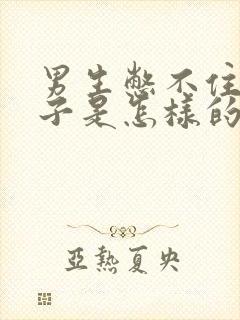 男生憋不住
子是怎樣的
亞熱夏央